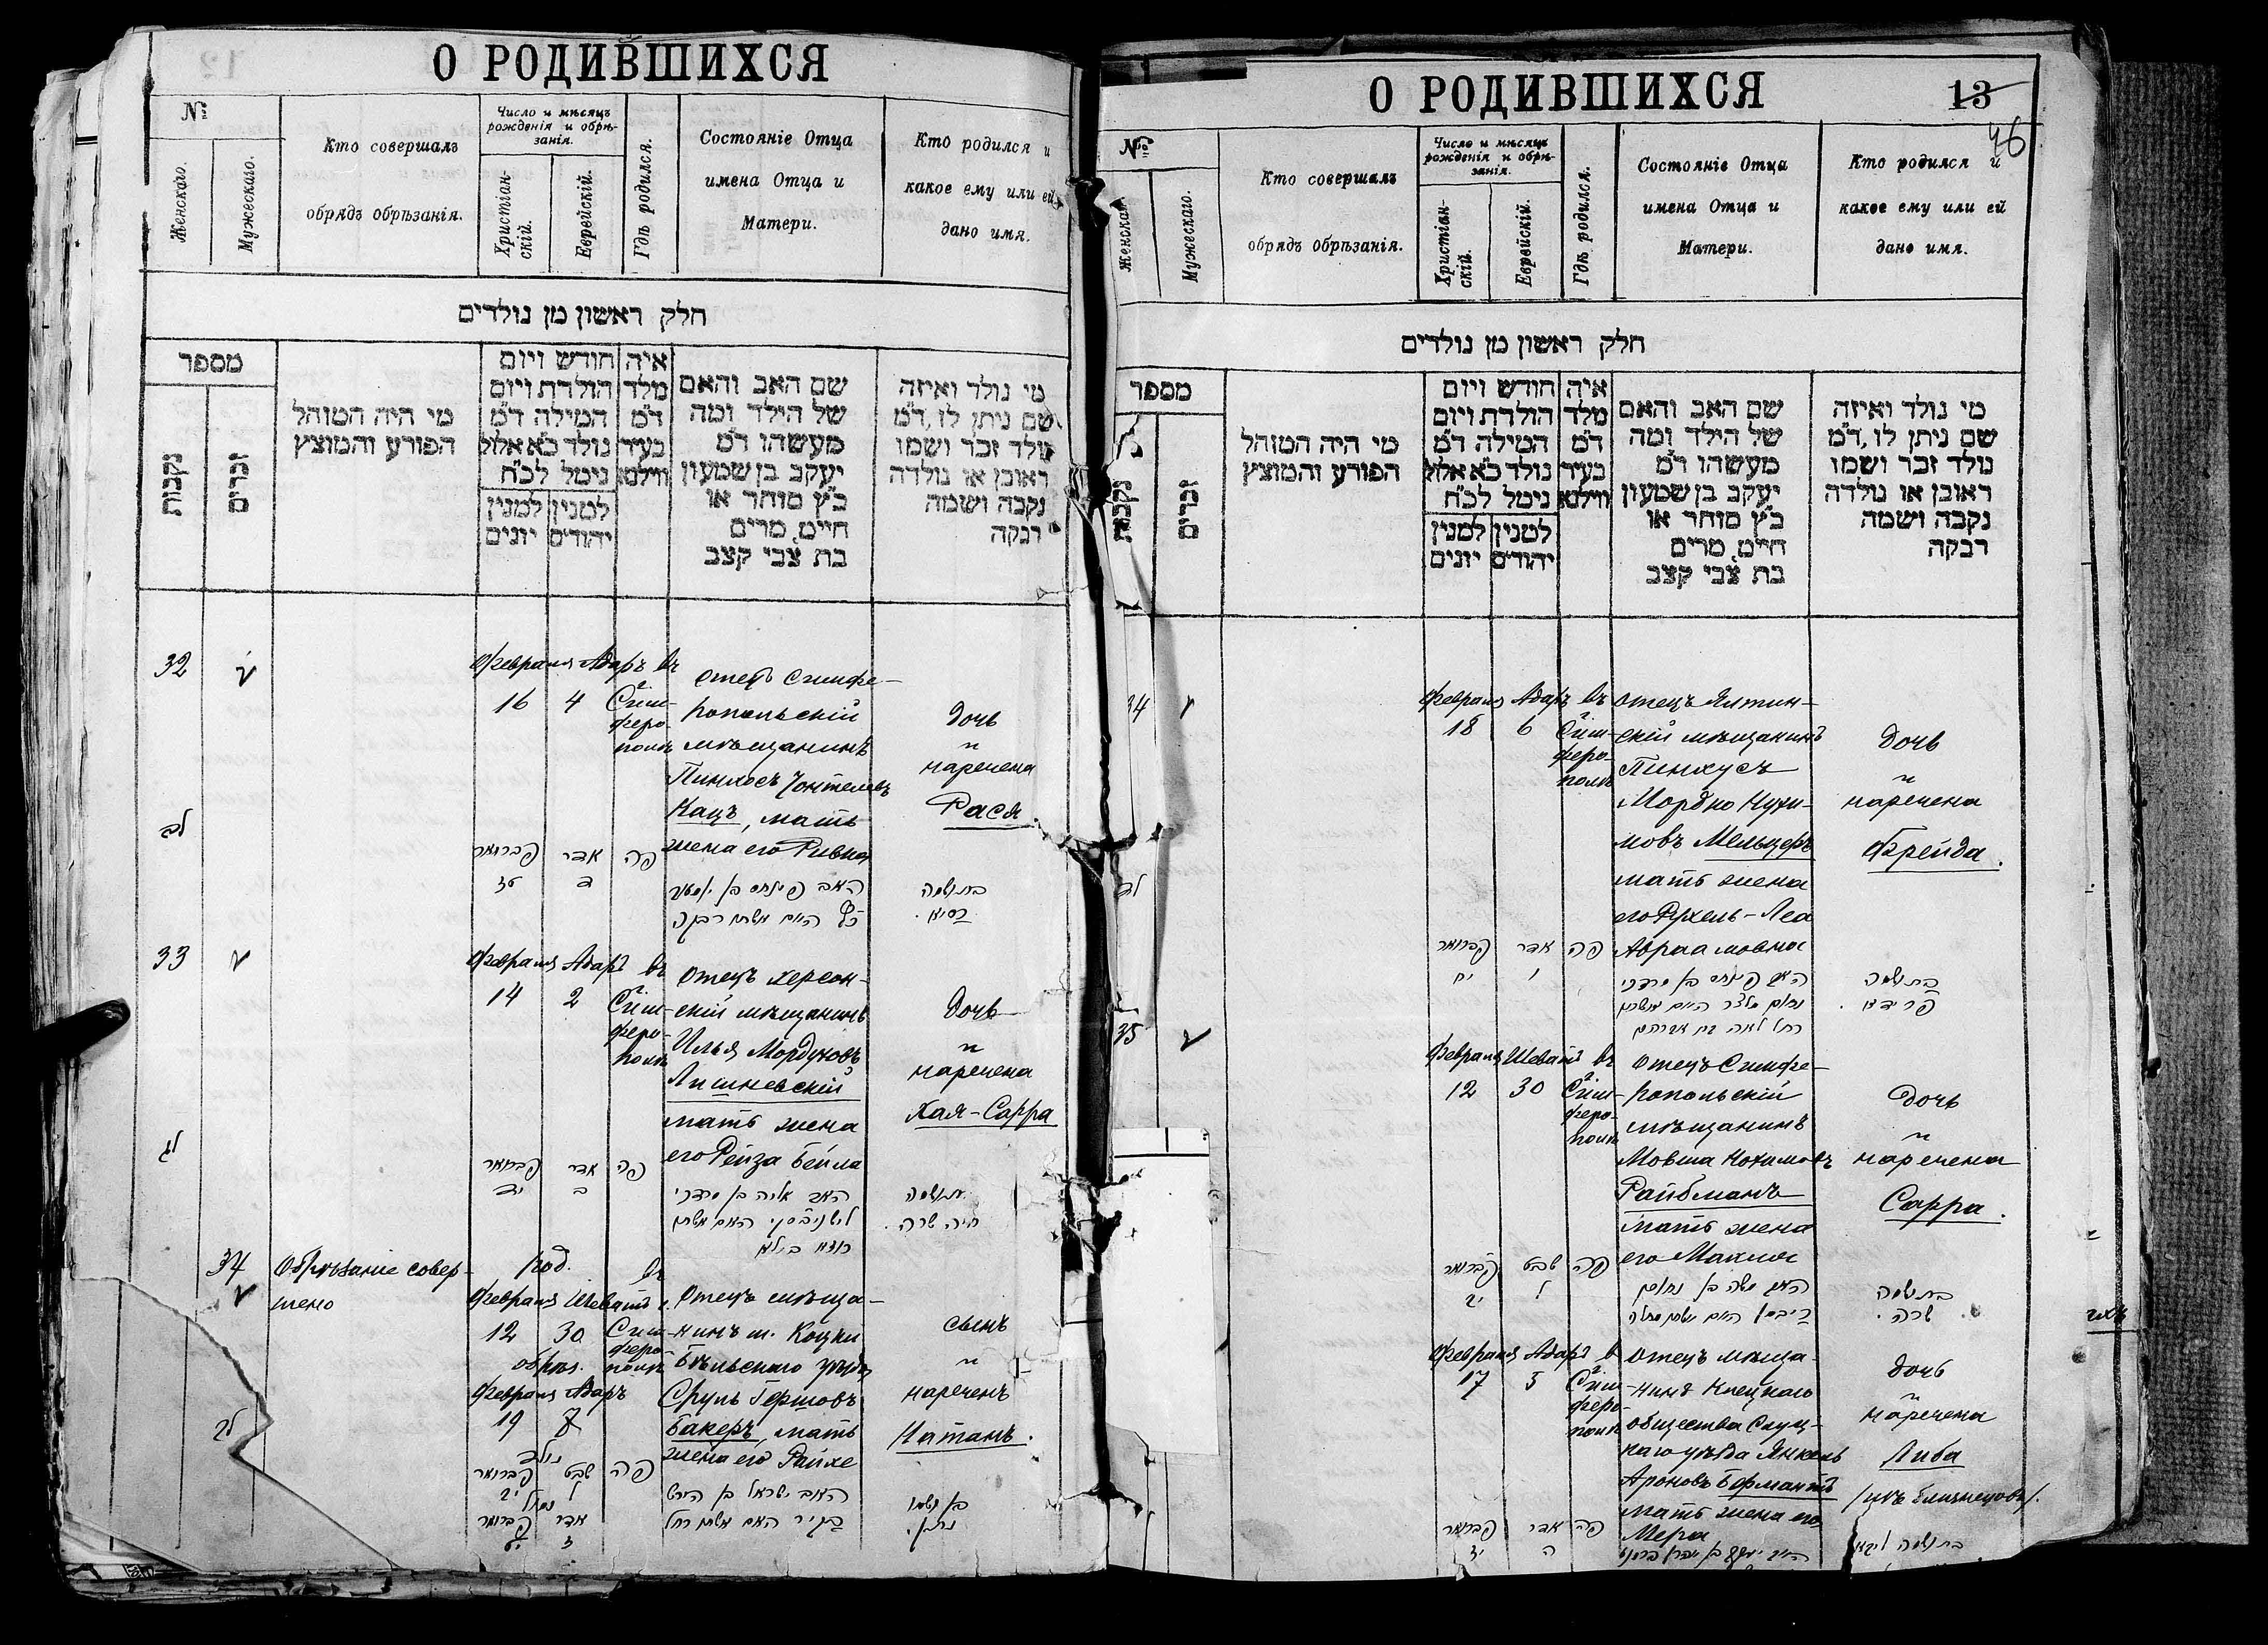 О РОДИВШИХСЯ
№
Женскаго.
Мужескаго.
Кто совершалъ
обрядъ обрѣзанія.
Число и мѣсяцъ
рожденія и обрѣ-
занія.
Христіан-
скій.
Еврейскій.
Гдѣ родился.
Состояніе Отца
имена Отца и
Матери.
Кто родился и
какое ему или ей
дано имя.
חלק ראשון מן נולדים
מספר
נקבות
זכרים
מי היה המוהל
הפורע והמוצץ
חודש ויום
הולדת ויום
המילה ד״מ
נולד כ״א אלול
נימל לכ״ח
למנין
יהודים
למנין
יונים
איה
מלד
ד״מ
בעיר
ווילנא
שם האב והאם
של הילד ומה
מעשהו ד״מ
יעקב בן שמעון
כ״ץ סוחר או
חייט, מרים
בת צבי קצב
מי נולד ואיזה
שם ניתן לו, ד״מ
נולד זכר ושמו
ראובן או נולדה
נקבה ושמה
רבקה
32
Февраля Адаръ въ
16 4 Сим-
феро-
полѣ
отецъ Симфе-
ропольскій
мѣщанинъ
Пинхосъ
Кацъ, мать
жена его Ривка
Дочь
и
наречена
Рася
לב
פברואר אדר פה
טז ד
33
Февраля Адаръ въ
14 2 Сим-
феро-
полѣ
отецъ херсон-
скій мѣщанинъ
Илья Мордуховъ
Лишневскій
мать жена
его Рейза Бейла
Дочь
и
наречена
Хая-Сарра
לג
פברואר אדר פה
יד ב
בת ושמה
חיה שרה.
34
Обрѣзаніе совер-
шено
род. въ
Февраля Шеватъ
12 30 Сим-
феро-
полѣ
обрѣз.
Февраля Адаръ
19 7
отецъ мѣща-
нинъ м. Коцки
Бѣльскаго уѣзда
Сруль Гершовъ
Бакеръ, мать
жена его Райхе
сынъ
и
нареченъ
Натанъ.
נולד
פברואר שבט פה
יב ל
נימול
פברואר אדר
יט ז
בן ושמו
נתן.
О РОДИВШИХСЯ
13
46
№
Женскаго
Мужескаго.
Кто совершалъ
обрядъ обрѣзанія.
Число и мѣсяцъ
рожденія и обрѣ-
занія.
Христіан-
скій.
Еврейскій.
Гдѣ родился.
Состояніе Отца
имена Отца и
Матери.
Кто родился и
какое ему или ей
дано имя.
חלק ראשון מן נולדים
מספר
נקבות
זכרים
מי היה המוהל
הפורע והמוצץ
חודש ויום
הולדת ויום
המילה ד״מ
נולד כ״א אלול
נימל לכ״ח
למנין
יהודים
למנין
יונים
איה
מלד
ד״מ
בעיר
ווילנא
שם האב והאם
של הילד ומה
מעשהו ד״מ
יעקב בן שמעון
כ״ץ סוחר או
חייט, מרים
בת צבי קצב
מי נולד ואיזה
שם ניתן לו, ד״מ
נולד זכר ושמו
ראובן או נולדה
נקבה ושמה
רבקה
34
Февраля Адаръ въ
18 6 Сим-
феро-
полѣ
отецъ Ялтин-
скій мѣщанинъ
Пинхусъ
Мордко Нухи-
мовъ Мельцеръ
мать жена
его Рухель-Леа
Авраамовна
Дочь
и
наречена
Фрейда.
לד
פברואר אדר פה
יח ו
האב פינחס בן מרדכי
נחום מלצר האם אשתו
רחל לאה בת אברהם
בת ושמה
פריידא.
35
Февраля Шеватъ въ
12 30 Сим-
феро-
полѣ
отецъ Симфе-
ропольскій
мѣщанинъ
Мовша Нохимовъ
Райбманъ
мать жена
его Махля
Дочь
и
наречена
Сарра.
פברואר שבט פה
יב ל
האב משה בן נחום
בת ושמה
שרה.
Февраля Адаръ въ
17 5 Сим-
феро-
полѣ
отецъ мѣща-
нинъ Клецкаго
общества Слуц-
каго уѣзда Янкель
Ароновъ Берманъ
мать жена его
Мера
дочь
и
наречена
Либа
/изъ близнецовъ/.
פברואר אדר פה
יז ה
בת ושמה ליבא